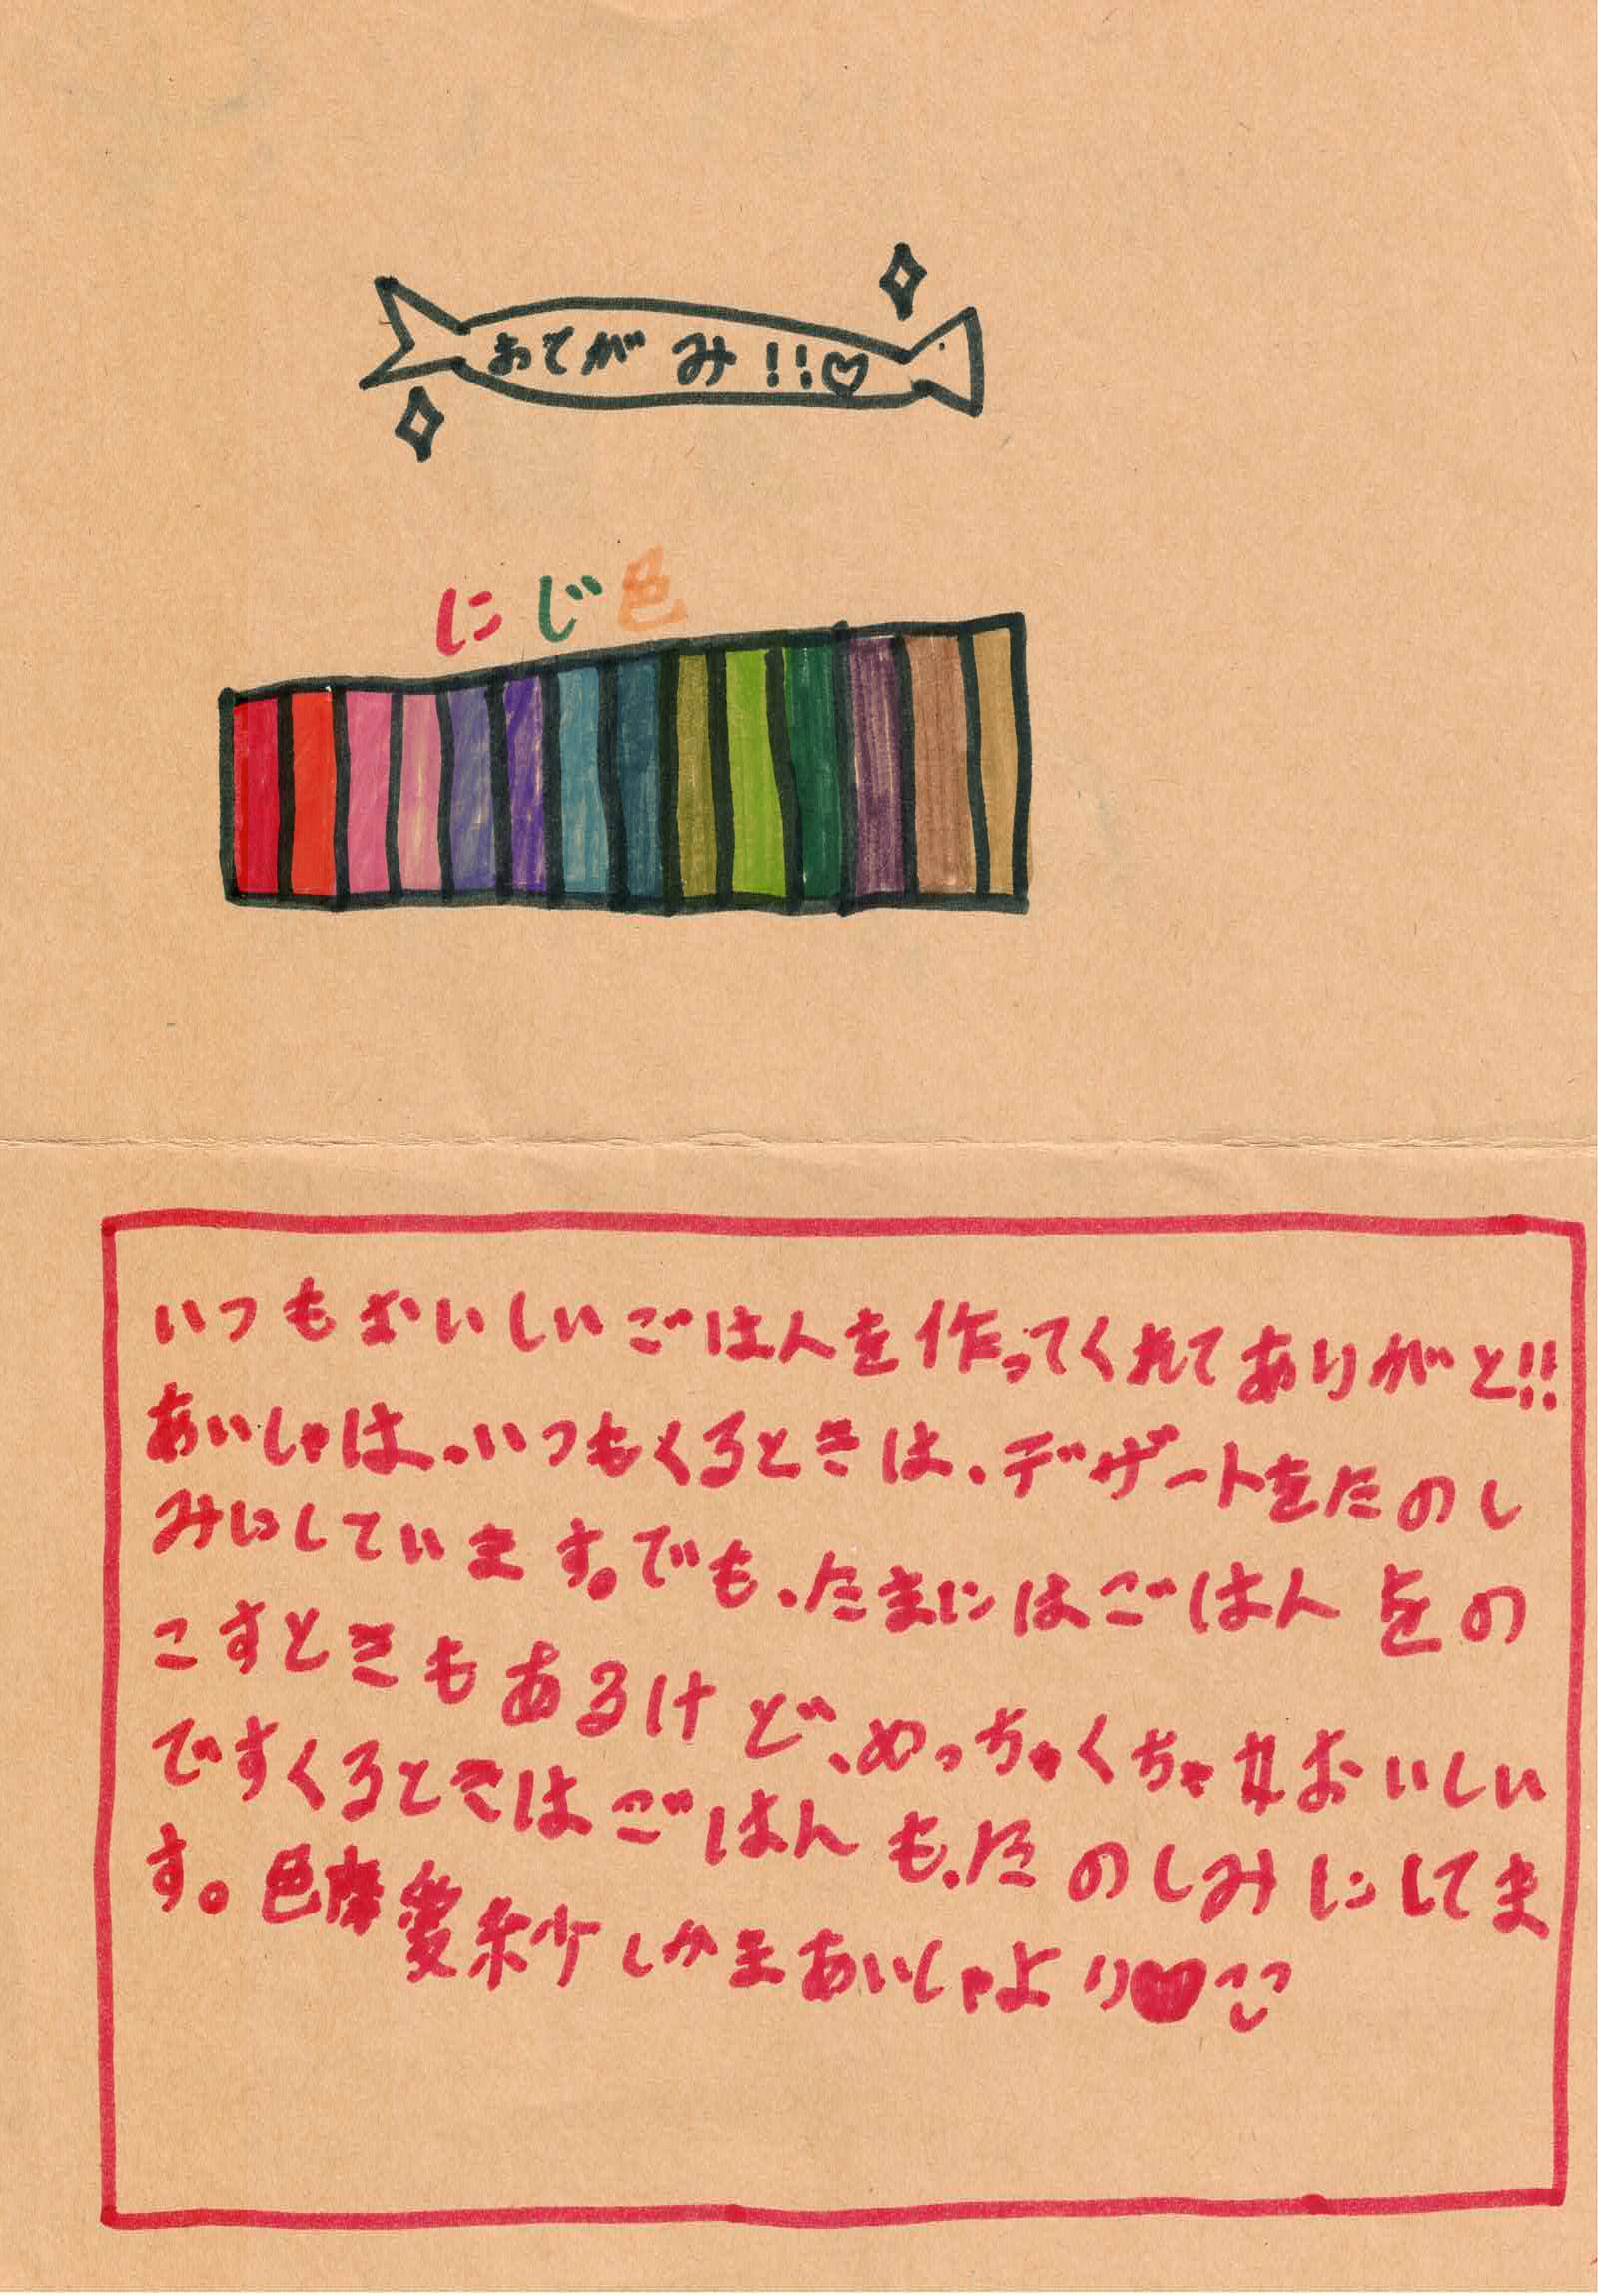 おてがみ!!♡
にじ色
いつもおいしいごはんを作ってくれてありがと!!
あいしゃは、いつもくるときは、デザートをたのし
みにしています。でも、たまにはごはんをの
こすときもあるけど、めっちゃくちゃおいしい
ですくるときはごはんも、たのしみにしてま
す。色摩愛紗しかまあいしゃより♥